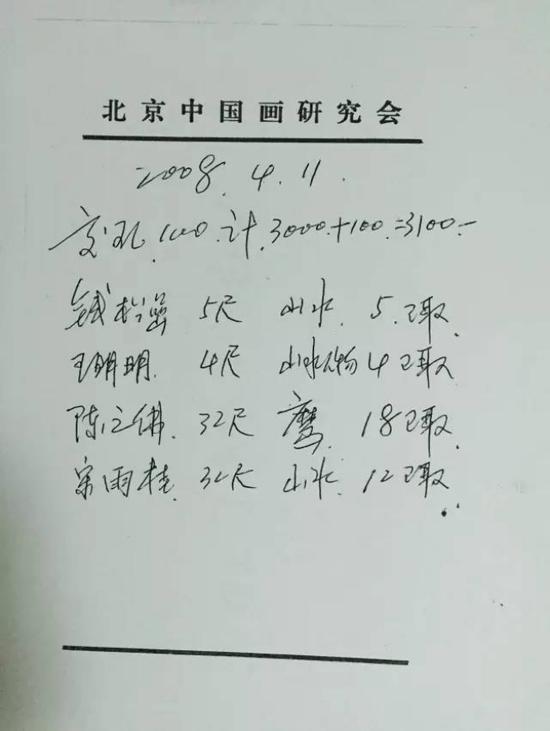 北京中国画研究会
2008.4.11.
交孔.100.计.3000.+100.=3100.-
钱松嵒 5尺 山水. 5.已取.
王明明. 4尺 山水人物 4已取
陈之佛. 32尺 鹰. 18已取.
宋雨桂. 32尺 山水. 12已取.